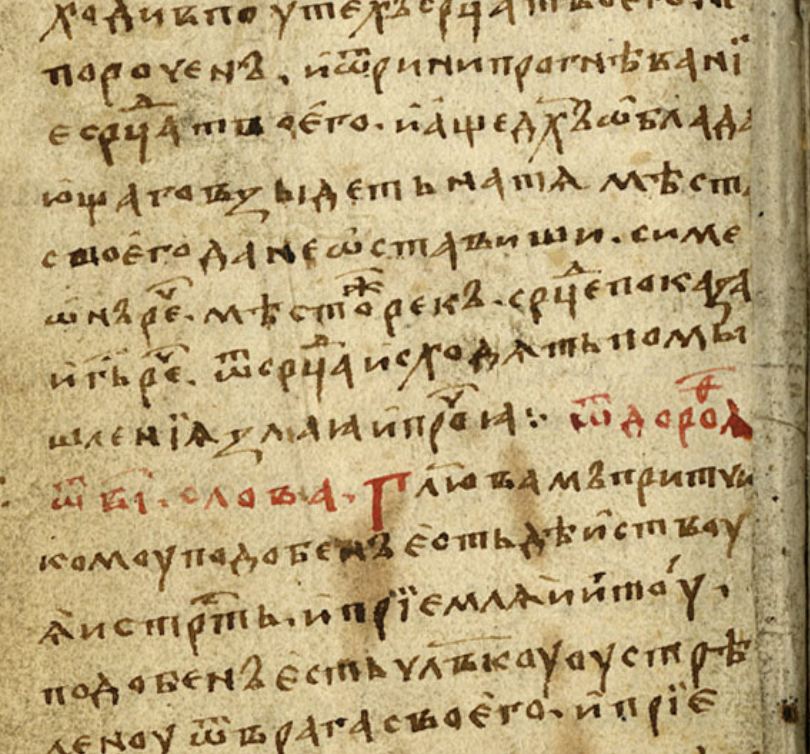 ходи в по утѣхъ срⷣца твоего.
пороученъ. и҆ ѿрини прогнѣванї
е срⷣца твоего. и҆ аще дх҃ъ ѡ҆блада
ющаго възыдеть на тѧ мѣст
своего да не ѡ҆ставиши. симе
ѡнъ реⷱ҇. мѣстоⷤ рекъ. срⷣце показа
и҆ г҃ь реⷱ҇. ѿ срⷣца исходѧть помы
шленїѧ злаꙗ и҆ проⷱ҇ꙗ ⁘ ѿ дороѳ
ѿ в҃і. слова. Гл҃ю вамъ притчи
комоу подобенъ е҆сть дѣиств оу
ѧи страⷭ҇ть. и҆ прїемлѧи и҆ тоу.
подобенъ есть чл҃вкоу оустрѣ
леноу ѿ врага своего. и҆ прїе